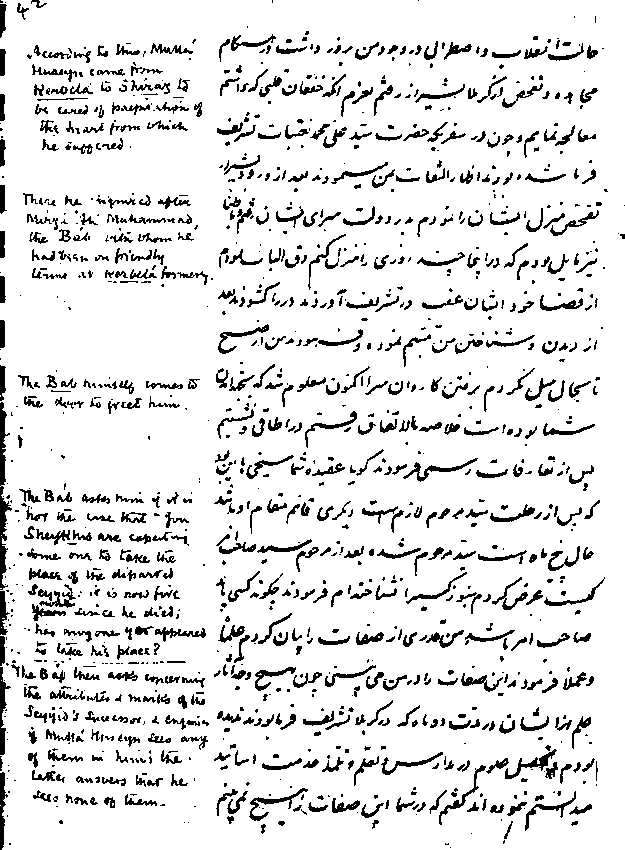 42
According to this, Mullá
Ḥuseyn came from
Kerbelá to Shíráz to
be cured of palpitation of
the heart from which
he suffered.
There he inquired after
Mírzá ʿAlí Muḥammad,
the Báb with whom he
had been on friendly
terms at Kerbelá formerly.
The Báb himself comes to
the door to greet him.
The Báb asks him if it is
not the case that you
Sheykhís are expecting
some one to take the
place of the departed
Seyyid: it is now five
months since he died;
has anyone yet appeared
to take his place?
The Báb then asks concerning
the attributes & marks of the
Seyyid's successor, & enquires
if Mullá Ḥuseyn sees any
of them in him: the
latter answers that he
sees none of them.
حالت انقلاب و اضطرابی در وجود من بروز داشت در هنگام
مجاهده و تفحص از کربلا بشیراز رفتم بعزم آنکه خفقان قلبی که داشتم
معالجه نمایم و چون در سفریکه حضرت سید علی محمد بعتبات تشریف
فرما شده بودند اظهار التفات بمن مینمودند بعد از ورود شیراز
تفحص منزل ایشان را نمودم بدر دولت سرای ایشان رفتم
نیز مایل بودم که در اینجا چند روزی را منزل کنم دق الباب نمودم
از قضا خود ایشان عقب در تشریف آوردند در را گشودند بعد
از دیدن و شناختن من تبسم نموده و فرمودند من از صبح
تا بحال میل نکردم برفتن کاروان سرا اکنون معلوم شد که
شما بوده است خلاصه بالاتفاق رفتیم در اطاقی و نشستیم
پس از تعارفات رسمی فرمودند گویا عقیده شما شیخی ها این
که پس از رحلت سید مرحوم لازم است دیگری قائم مقام او باشد
حال پنج ماه است سید مرحوم شده بعد از مرحوم سید صاحب امر
کیست عرض کردم هنوز کسیرا نشناخته ام فرمودند چگونه کسی
صاحب امر باشد من قدری از صفات را بیان کردم علماً
و عملاً فرمودند این صفات را در من می بینی چون هیچ وجه آثار
علم از ایشان در مدت دو ماه که در کربلا تشریف فرما بودند ندیده
بودم تحصیل علوم در مدارس و تعلم و تلمذ خدمت اساتید
میدانستم ننموده اند گفتم که در شما این صفات را هیچ نمی بینم